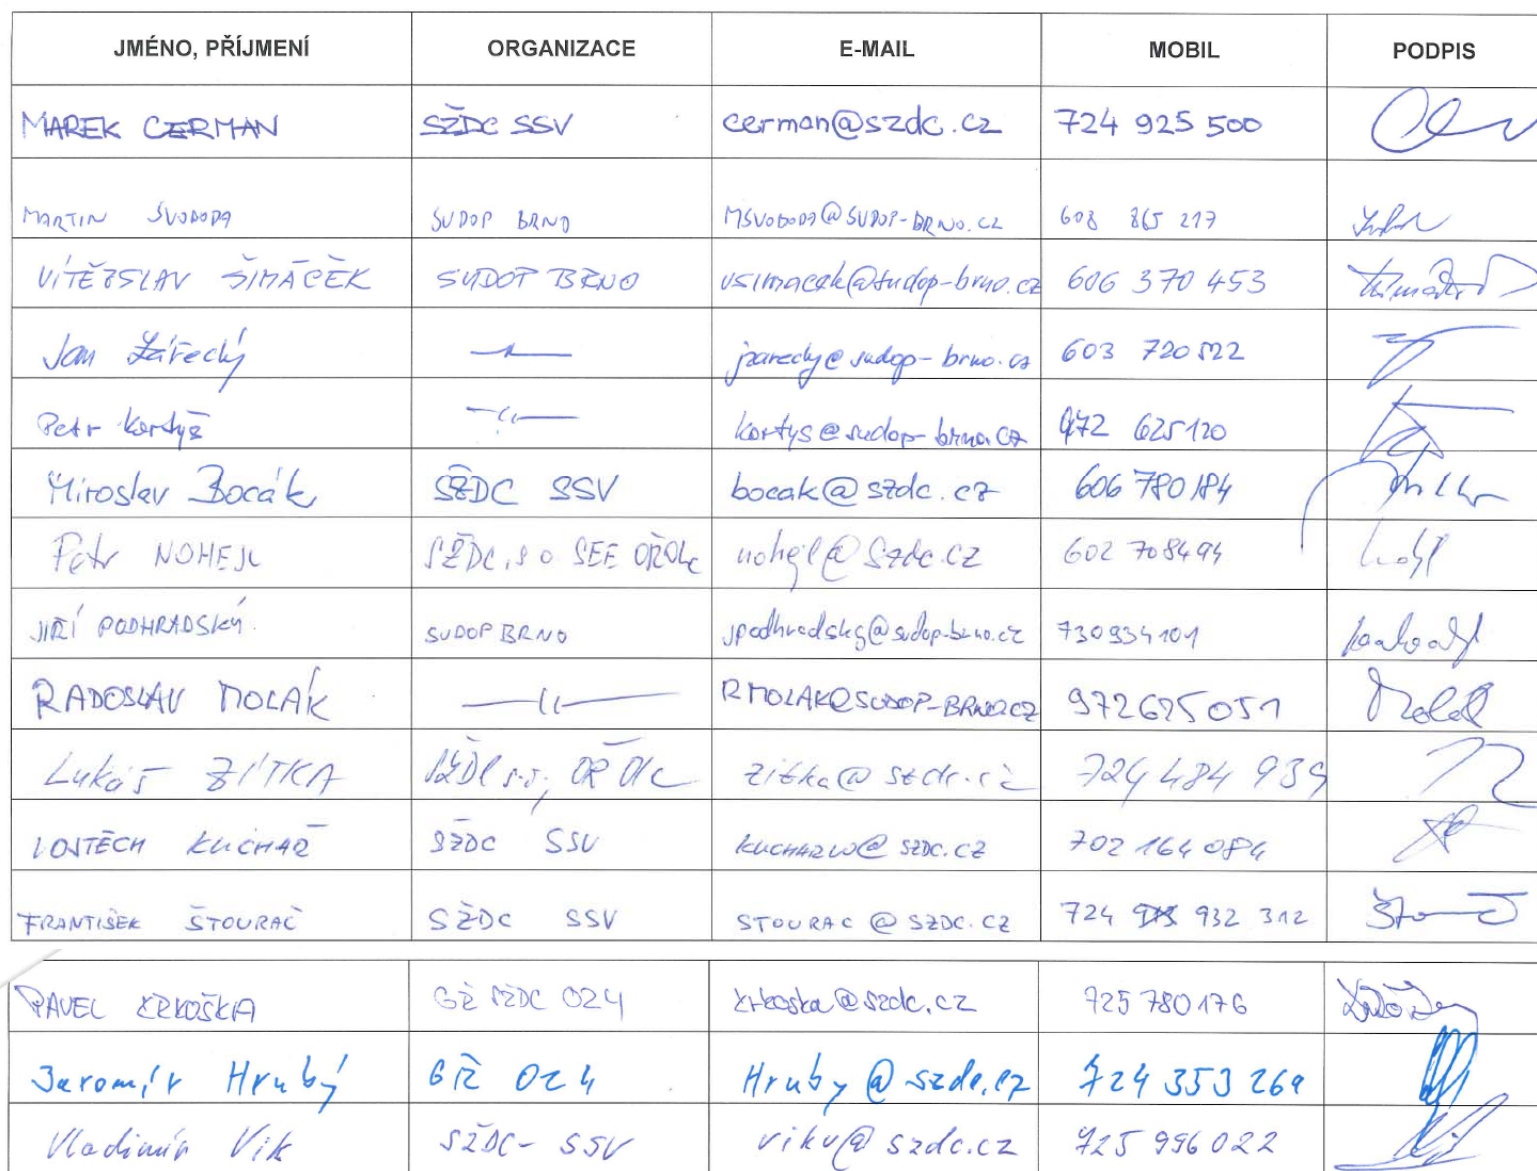 JMÉNO, PŘÍJMENÍ ORGANIZACE E-MAIL MOBIL PODPIS
MAREK CERMAN SŽDC SSV cerman@szdc.cz 724 925 500
MARTIN SVOBODA SUDOP BRNO MSVOBODA@SUDOP-BRNO.CZ 608 865 217
VÍTĚZSLAV ŠIMÁČEK SUDOP BRNO vsimacek@sudop-brno.cz 606 370 453
Jan sudop-brno.cz 603 720 522
Petr Kortyš kortys@sudop-brno.cz 972 625120
Miroslav Bocák SŽDC SSV bocak@szdc.cz 606 780 184
Petr NOHEJL SŽDC, s.o. SEE nohejl@szdc.cz 602 708494
JIŘÍ PODHRADSKÝ SUDOP BRNO jpodhradsky@sudop-brno.cz 730934101
RADOSLAV MOLÁK RMOLAK@SUDOP-BRNO.CZ 972625051
Lukáš ZÍTKA zitka@szdc.cz 724 484 939
VOJTĚCH KUCHAŘ SŽDC SSV KUCHARVO@SZDC.CZ 702 164 084
FRANTIŠEK ŠTOURAČ SŽDC SSV STOURAC@SZDC.CZ 724 932 312
PAVEL KRKOŠKA GŘ SŽDC O24 krkoska@szdc.cz 725 780 176
Jaromír Hrubý GŘ O24 Hruby@szdc.cz 724 353 269
Vladimír Vik SŽDC-SSV vikv@szdc.cz 725 996 022